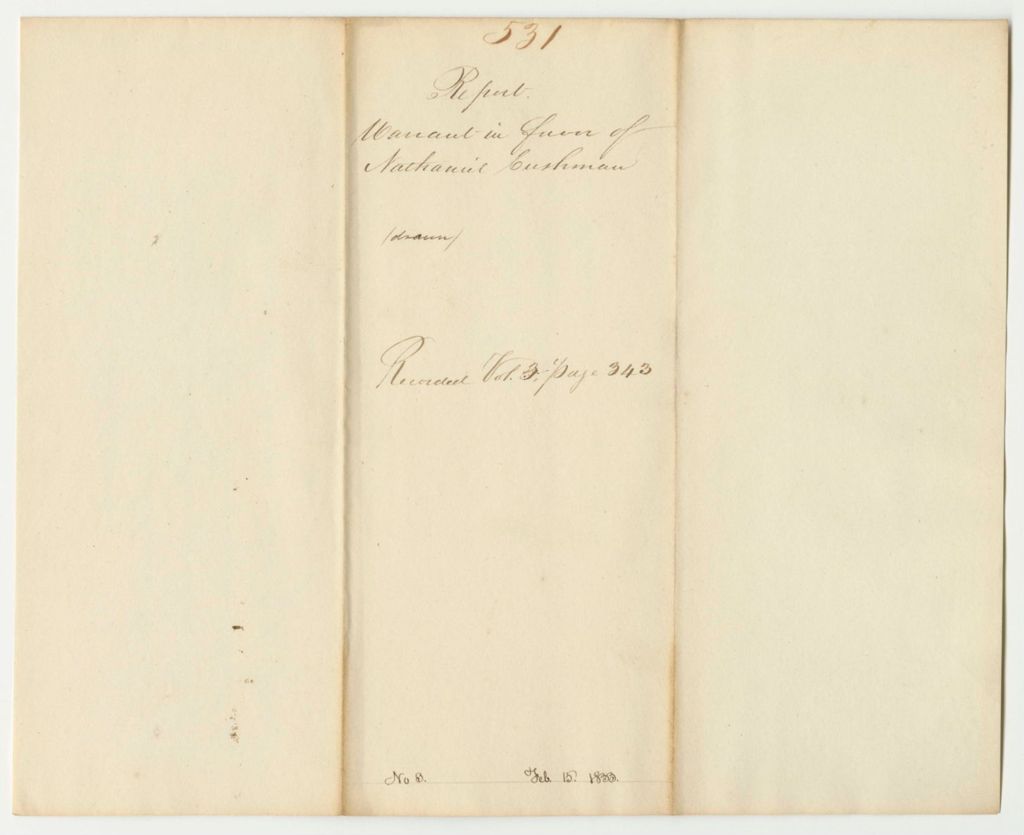 531
Report.
Warrant in favor of
Nathaniel Cushman
(drawn)
Recorded Vol. 3, page 343
No 8. Feb. 15. 1833.